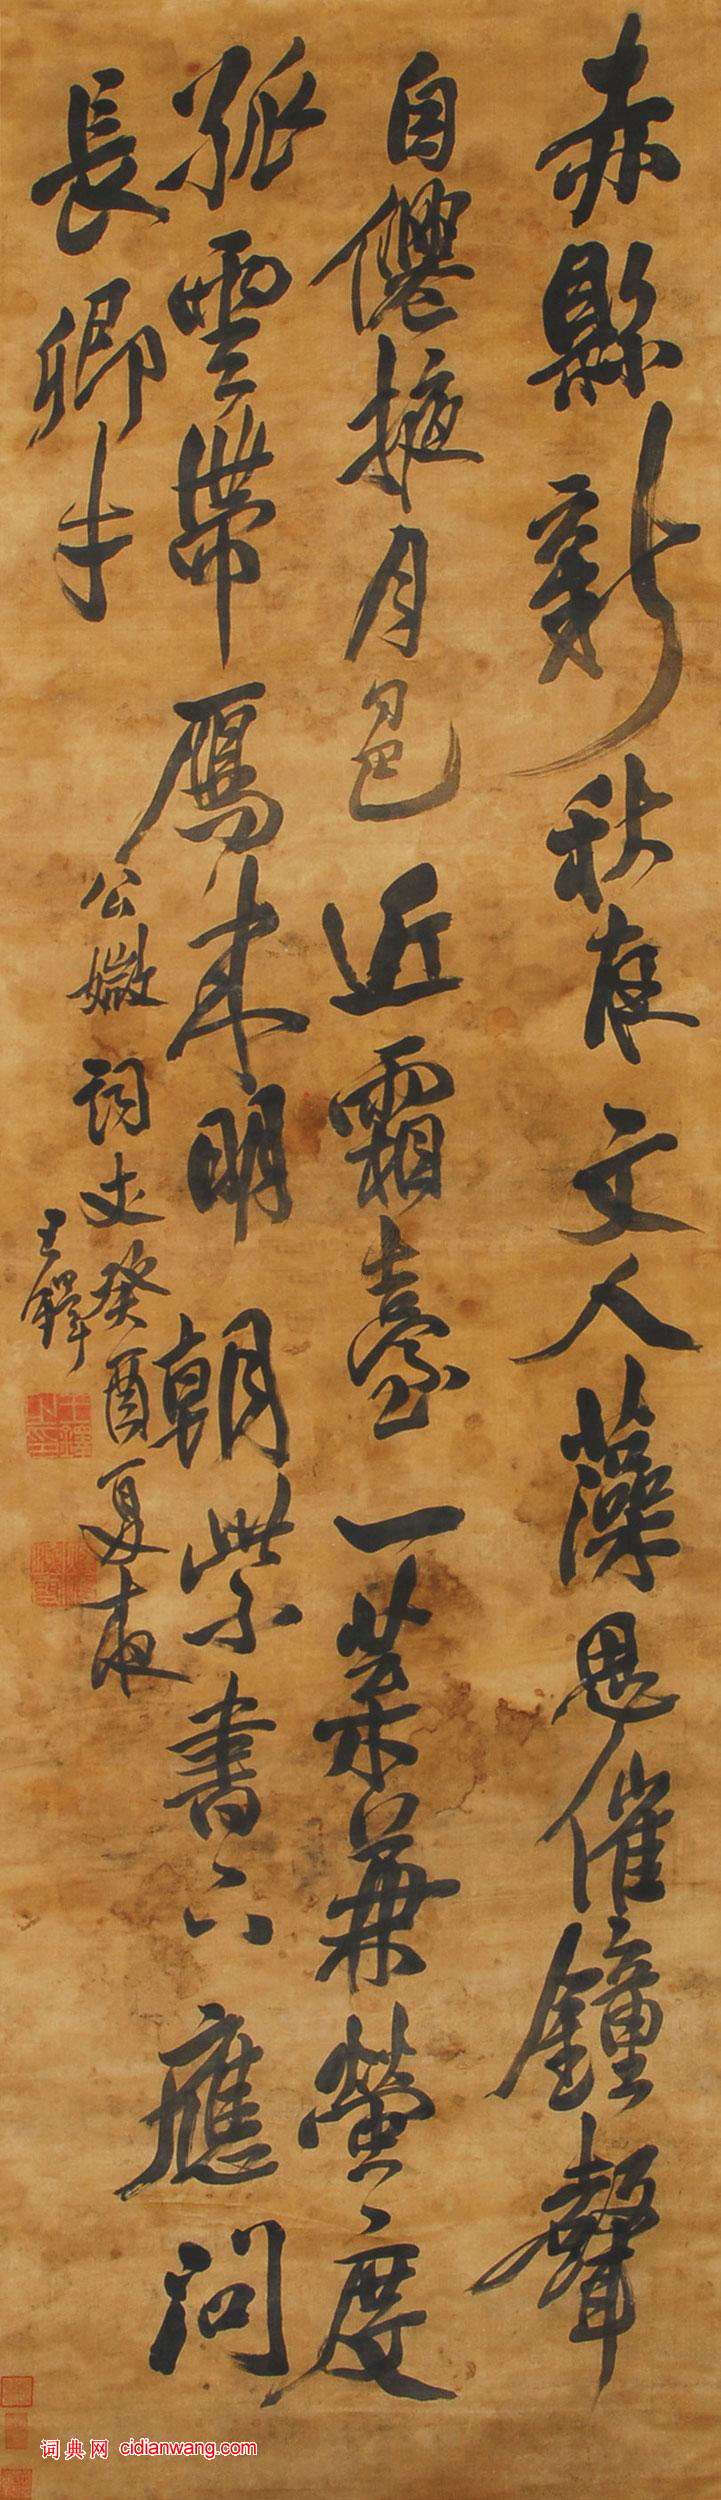 赤縣新秋夜文人藻思催鐘聲
自僊掖月色近霜臺一葉兼螢度
孤雲帶鴈來明朝紫書下應問
長卿才
公媺詞丈癸酉夏夜
王鐸
王鐸之印
词典网 cidianwang.com